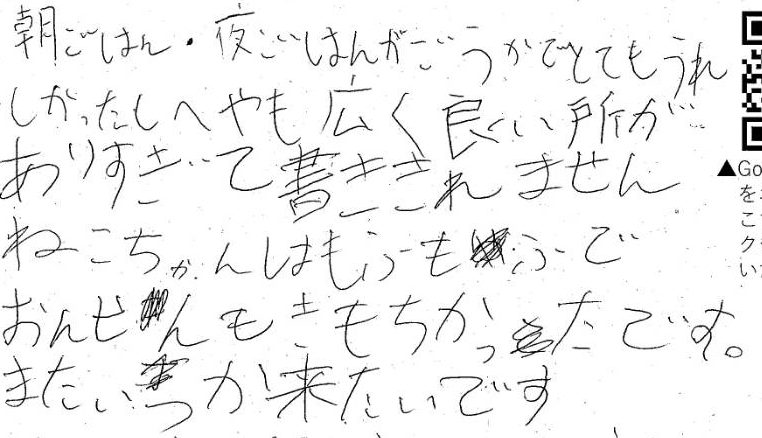 朝ごはん・夜ごはんがごうかでとてもうれ
しかったしへやも広く良い所が
ありすぎて書ききれません
ねこちゃんはもふもふで
おんせんもきもちかったです。
またいつか来たいです
▲Go
を
こ
ク
い